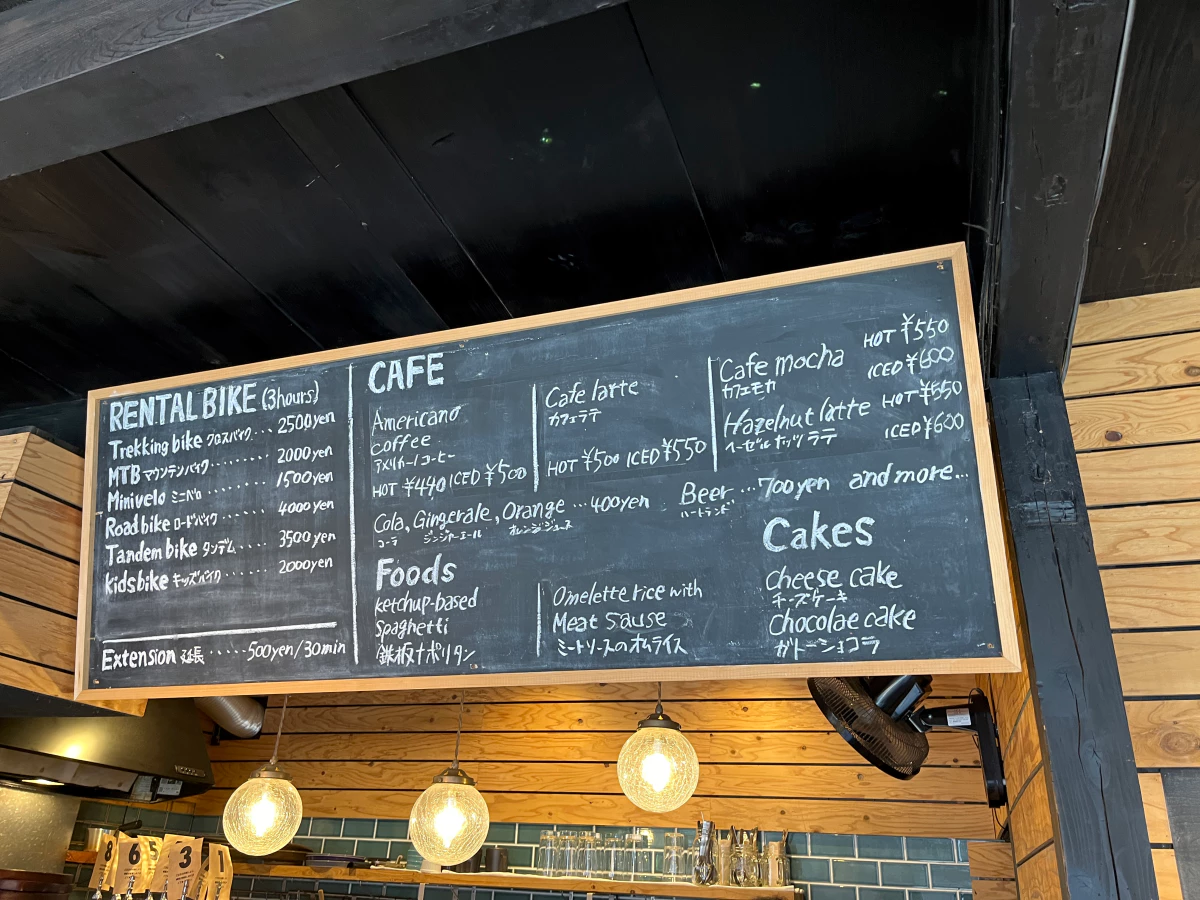 RENTAL BIKE (3hours)
Trekking bike クロスバイク... 2500yen
MTB マウンテンバイク........ 2000yen
Minivelo ミニベロ........ 1500yen
Road bike ロードバイク...... 4000yen
Tandem bike タンデム..... 3500yen
kids bike キッズバイク...... 2000yen
Extension 延長.....500yen/30min
CAFE
Americano
coffee
アメリカーノコーヒー
HOT ¥440 ICED ¥500
Cafe latte
カフェラテ
HOT ¥500 ICED ¥550
Cafe mocha HOT ¥550
カフェモカ ICED ¥600
Hazelnut latte HOT ¥550
ヘーゼルナッツラテ ICED ¥600
Cola, Gingerale, Orange ...400yen
コーラ ジンジャーエール オレンジジュース
Beer...700yen and more...
ハートランド
Foods
ketchup-based
Spaghetti
鉄板ナポリタン
Omelette rice with
Meat sause
ミートソースのオムライス
Cakes
Cheese cake
チーズケーキ
Chocolae cake
ガトーショコラ
8
6
5
3
1